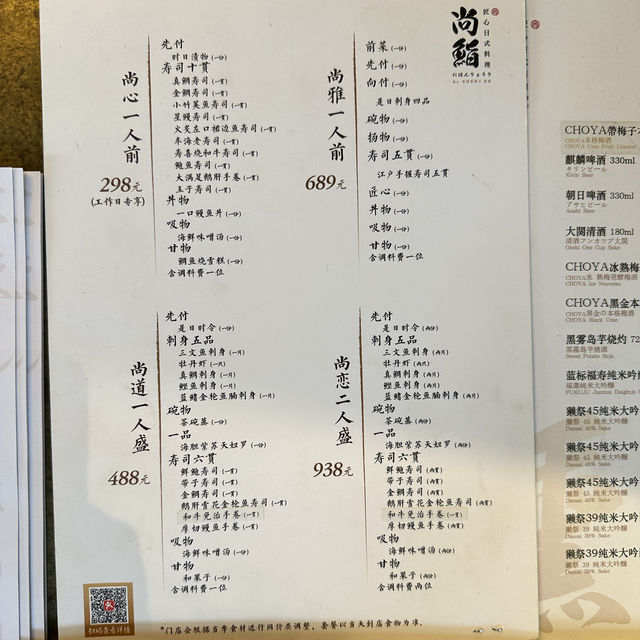 尚鮨
匠心日式料理
にほんりょうり
尚心一人前
298元
(工作日专享)
先付
时日渍物(一份)
寿司十貫
真鲷寿司(一貫)
金鲷寿司(一貫)
小竹荚鱼寿司(一貫)
星鳗寿司(一貫)
火炙左口裙边鱼寿司(一貫)
车海老寿司(一貫)
寿喜烧和牛寿司(一貫)
鲍鱼寿司(一貫)
大满足鹅肝手卷(一貫)
玉子寿司(一貫)
丼物
一口鳗鱼丼(一份)
吸物
海鲜味噌汤(一份)
甘物
鲷鱼烧雪糕(一份)
含调料费一位
尚雅一人前
689元
前菜(一份)
先付(一份)
向付(一份)
是日刺身四品
碗物(一份)
扬物(一份)
寿司五貫(一份)
江户手握寿司五貫
匠心(一份)
丼物(一份)
吸物(一份)
甘物(一份)
含调料费一位
尚道一人盛
488元
先付
是日时令(一份)
刺身五品
三文鱼刺身(一片)
牡丹虾(一只)
真鲷刺身(一片)
鲣鱼刺身(一片)
蓝鳍金枪鱼腩刺身(一片)
碗物
茶碗蒸(一份)
一品
海胆紫苏天妇罗(一份)
寿司六貫
鲜鲍寿司(一貫)
带子寿司(一貫)
金鲷寿司(一貫)
鹅肝雪花金枪鱼寿司(一貫)
和牛免治手卷(一貫)
厚切鳗鱼手卷(一貫)
吸物
海鲜味噌汤(一份)
甘物
和果子(一份)
含调料费一位
尚恋二人盛
938元
先付
是日时令(两份)
刺身五品
三文鱼刺身(两片)
牡丹虾(两只)
真鲷刺身(两片)
鲣鱼刺身(两片)
蓝鳍金枪鱼腩刺身(两片)
碗物
茶碗蒸(两份)
一品
海胆紫苏天妇罗(两份)
寿司六貫
鲜鲍寿司(两貫)
带子寿司(两貫)
金鲷寿司(两貫)
鹅肝雪花金枪鱼寿司(两貫)
和牛免治手卷(两貫)
厚切鳗鱼手卷(两貫)
吸物
海鲜味噌汤(两份)
甘物
和果子(两份)
含调料费两位
扫码查看详情
*门店会根据当季食材进行同价类调整，套餐以当天到店食物为准。
CHOYA帶梅子本
CHOYA本格梅酒
CHOYA Ume Fruit Liqueur
麒麟啤酒 330ml
キリンビール
Kirin Beer
朝日啤酒 330ml
アサヒビール
Asahi Beer
大関清酒 180ml
清酒ワンカップ大関
Ozeki One Cup Sake
CHOYA冰熟梅
CHOYA氷 熟梅発酵梅酒
CHOYA Ice Nouveau
CHOYA黑金本
CHOYA黒金の本格梅酒
CHOYA Black Ume
黑雾岛芋烧灼 72
黒霧島芋焼酒
Sweet Potato Soju
蓝标福寿纯米吟
福壽純米大吟醸
FUKUJU Junmai Daiginjo
獭祭45纯米大吟
獺祭 45 純米大吟醸
Dassai 45% Sake
獭祭45纯米大吟
獺祭 45 純米大吟醸
Dassai 45% Sake
獭祭45纯米大吟
獺祭 45 純米大吟醸
Dassai 45% Sake
獭祭39纯米大吟
獺祭 39 純米大吟醸
Dassai 39% Sake
獭祭39纯米大吟
獺祭 39 純米大吟醸
Dassai 39% Sake